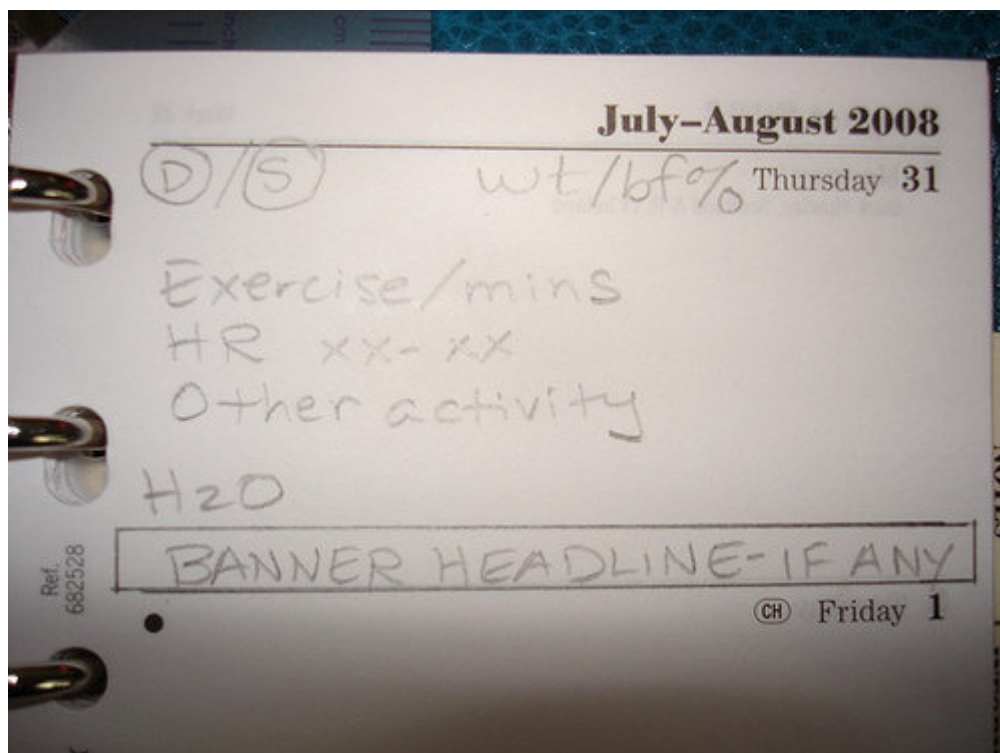 July–August 2008
D/S wt/bf% Thursday 31
Exercise/mins
HR xx-xx
Other activity
H2O
BANNER HEADLINE-IF ANY
CH Friday 1
Ref. 682528